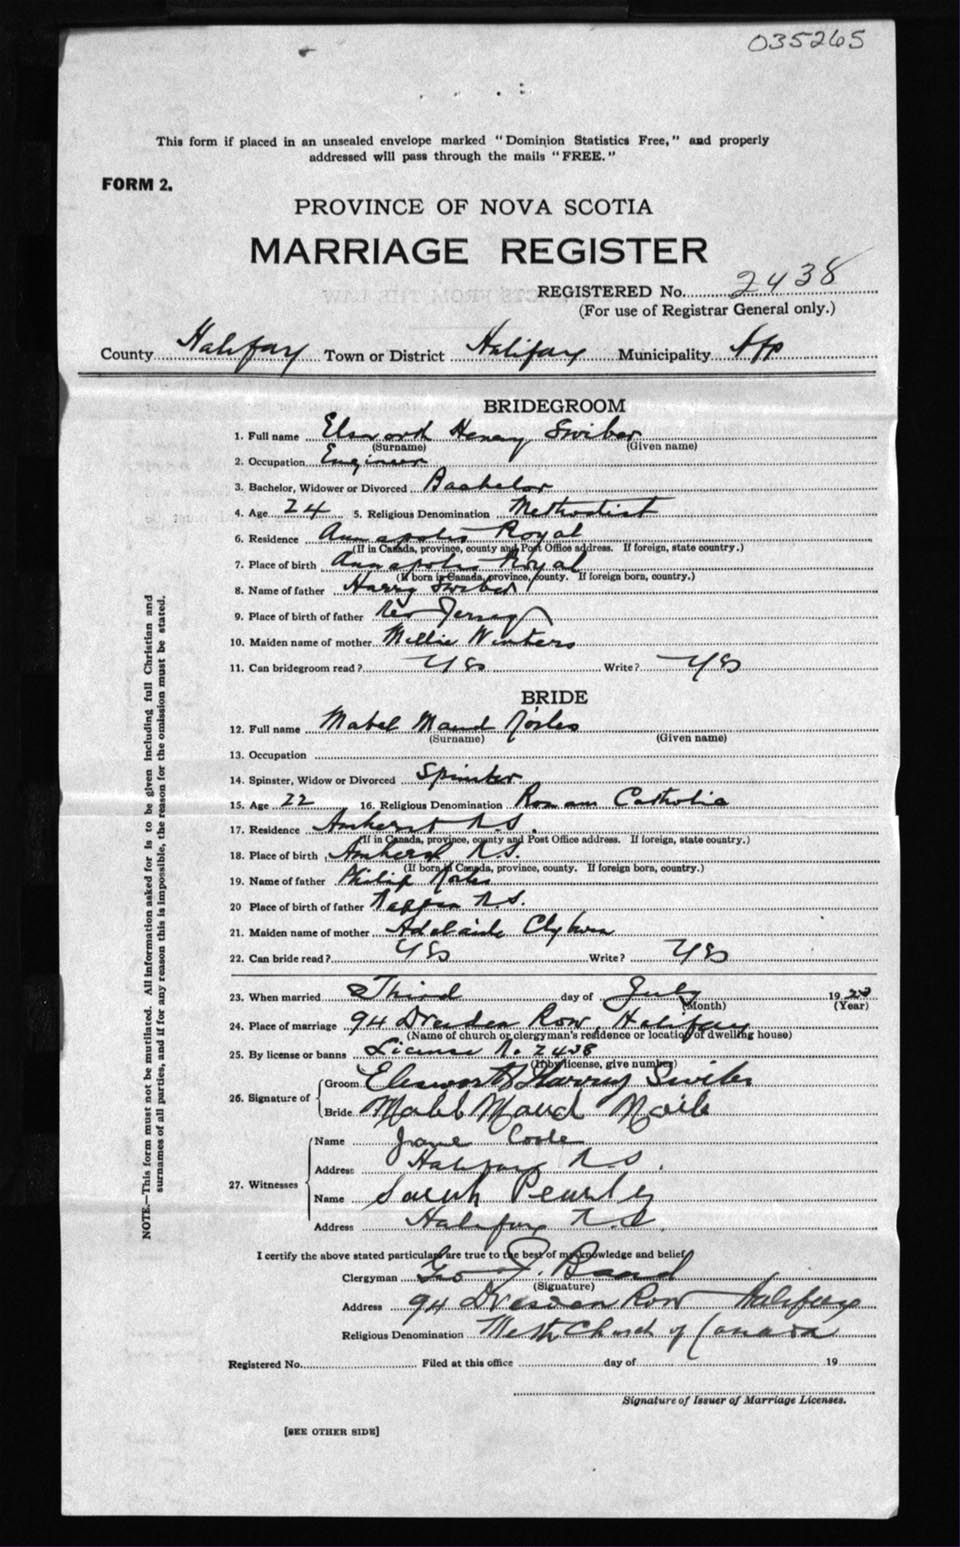 035265
This form if placed in an unsealed envelope marked "Dominion Statistics Free," and properly
addressed will pass through the mails "FREE."
FORM 2.
PROVINCE OF NOVA SCOTIA
MARRIAGE REGISTER
REGISTERED No. 2438
(For use of Registrar General only.)
County Halifax Town or District Halifax Municipality
BRIDEGROOM
1. Full name Elsword Henry Swiber
(Surname) (Given name)
2. Occupation Engineer
3. Bachelor, Widower or Divorced Bachelor
4. Age 24 5. Religious Denomination Methodist
6. Residence Annapolis Royal
(If in Canada, province, county and Post Office address. If foreign, state country.)
7. Place of birth Annapolis Royal
(If born in Canada, province, county. If foreign born, country.)
8. Name of father Harry Swiber
9. Place of birth of father New Jersey
10. Maiden name of mother Millie Winters
11. Can bridegroom read? Yes Write? Yes
BRIDE
12. Full name Mabel Maud
(Surname) (Given name)
13. Occupation
14. Spinster, Widow or Divorced Spinster
15. Age 22 16. Religious Denomination Roman Catholic
17. Residence Amherst N.S.
(If in Canada, province, county and Post Office address. If foreign, state country.)
18. Place of birth Amherst N.S.
(If born in Canada, province, county. If foreign born, country.)
19. Name of father Philip
20 Place of birth of father Nappan N.S.
21. Maiden name of mother Adelaide Clyburn
22. Can bride read? Yes Write? Yes
23. When married Third day of July 1923
(Month) (Year)
24. Place of marriage 94 Dresden Row, Halifax
(Name of church or clergyman's residence or location of dwelling house)
25. By license or banns License No. 2438
(If by license, give number)
26. Signature of
Groom Elsworth Harry Swiber
Bride Mabel Maud
27. Witnesses
Name Jane Coole
Address Halifax N.S.
Name Sarah
Address Halifax N.S.
I certify the above stated particulars are true to the best of my knowledge and belief.
Clergyman Geo J. Bond
(Signature)
Address 94 Dresden Row Halifax
Religious Denomination Meth. Church of Canada
Registered No. Filed at this office day of 19
Signature of Issuer of Marriage Licenses.
[SEE OTHER SIDE]
NOTE.—This form must not be mutilated. All information asked for is to be given including full Christian and
surnames of all parties, and if for any reason this is impossible, the reason for the omission must be stated.